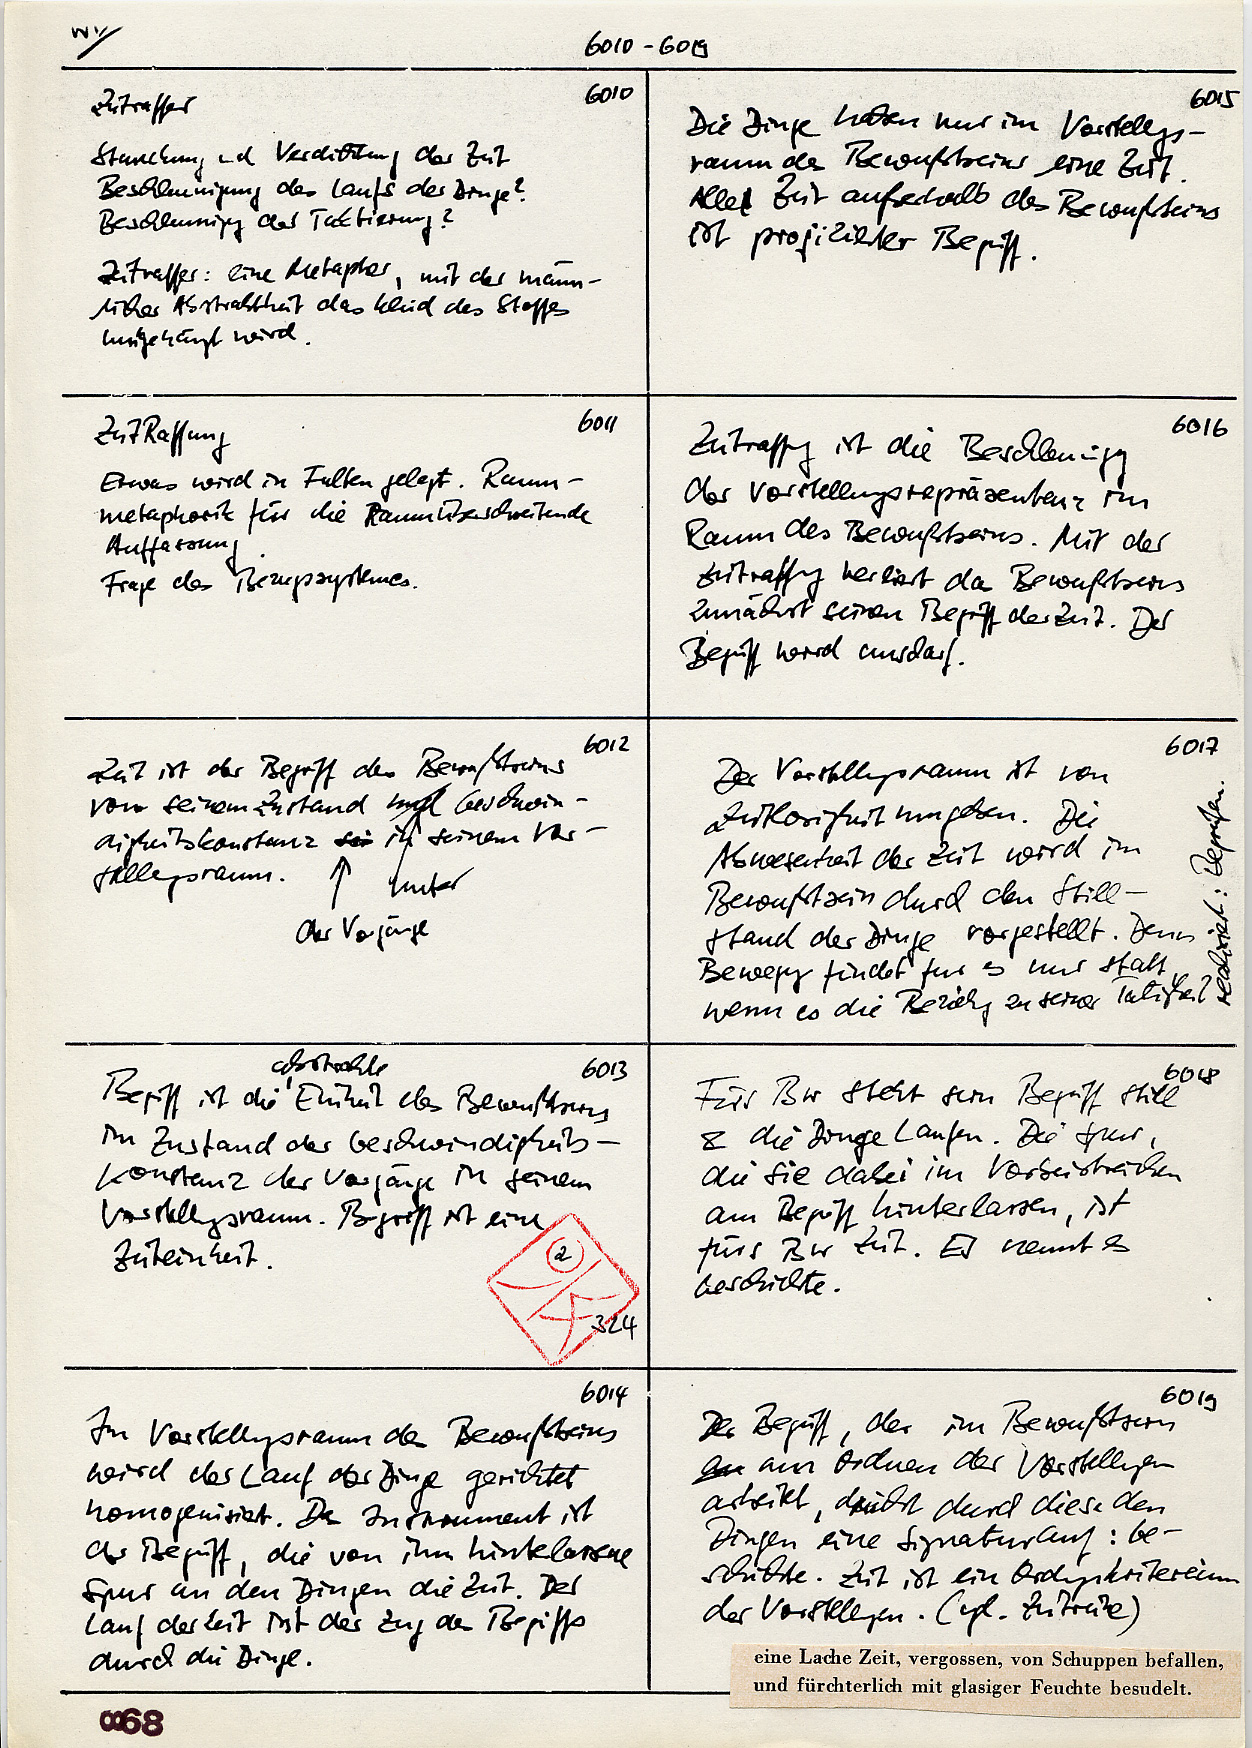 6010 - 6019
6010
Zeitraffer
Stauchung und Verdichtung der Zeit
Beschleunigung des Laufs der Dinge?
Beschleunigg der Taktierung?
Zeitraffer: eine Metapher, mit der männ-
licher Abstraktheit das Kleid des Stoffes
umgehängt wird.
6011
ZeitRaffung
Etwas wird in Falten gelegt. Raum-
metaphorik für die Raumüberschreitende
Auffassung.
Frage des Bezugssystemes.
6012
Zeit ist der Begriff des Bewußtseins
von seinem Zustand und Geschwin-
digkeitskonstanz in seinem Vor-
stellgsraum. unter
der Vorgänge
6013
abstrakte
Begriff ist die Einheit des Bewußtseins
im Zustand der Geschwindigkeits-
konstanz der Vorgänge in seinem
Vorstellgsraum. Begriff ist eine
Zeiteinheit.
2
324
6014
Im Vorstellgsraum des Bewußtseins
wird der Lauf der Dinge gerichtet
homogenisiert. Das Instrument ist
der Begriff, die von ihm hinterlassene
Spur an den Dingen die Zeit. Der
Lauf der Zeit ist der Zug des Begriffs
durch die Dinge.
868
6015
Die Dinge haben nur im Vorstellgs-
raum des Bewußtseins eine Zeit.
Alle Zeit außerhalb des Bewußtseins
ist projizierter Begriff.
6016
Zeitraffg ist die Beschleunigg
der Vorstellungsrepräsentanz im
Raum des Bewußtseins. Mit der
Zeitraffg verliert das Bewußtsein
zunächst seinen Begriff der Zeit. Der
Begriff wird unscharf.
6017
Der Vorstellgsraum ist von
Zeitlosigkeit umgeben. Die
Abwesenheit der Zeit wird im
Bewußtsein durch den Still-
stand der Dinge vorgestellt. Denn
Bewegg findet für es nur statt,
wenn es die Beziehg zu seiner Tätigkeit
realisiert: Begreifen.
6018
Fürs Bw steht sein Begriff still
& die Dinge laufen. Die Spur,
die sie dabei im Vorbeistreichen
am Begriff hinterlassen, ist
fürs Bw Zeit. Es nennt es
Geschichte.
6019
Der Begriff, der im Bewußtsein
am Ordnen der Vorstellgen
arbeitet, drückt durch diese den
Dingen eine Signatur auf: Ge-
schichte. Zeit ist ein Ordngskriterium
der Vorstellgen. (vgl. Zeitreise)
eine Lache Zeit, vergossen, von Schuppen befallen,
und fürchterlich mit glasiger Feuchte besudelt.